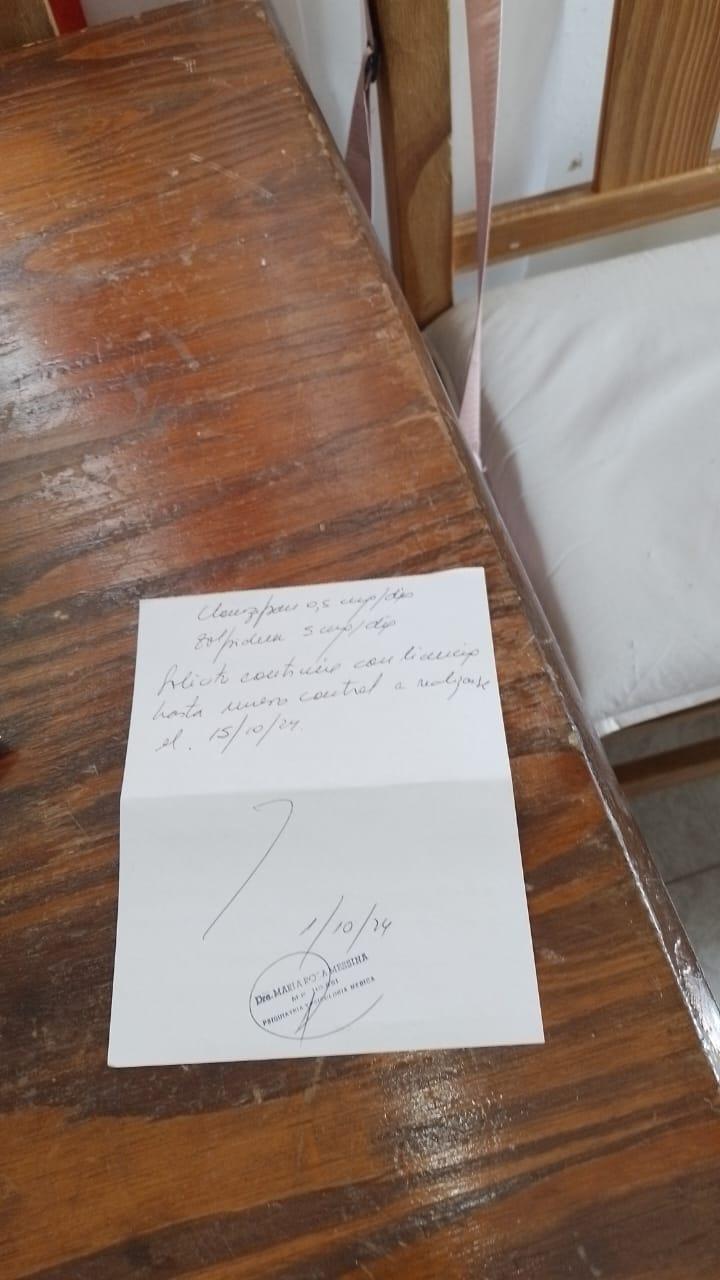 Clonazepam 0,5 mg/día
Zolpidem 5 mg/día
Solicito continúe con licencia
hasta nuevo control a realizarse
el. 15/10/24.
1/10/24
Dra. MARIA ROSA MESSINA
M.P.
PSIQUIATRIA Y PSICOLOGIA MEDICA